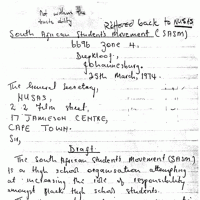 Not without the
Referred back to NUSAS
South African Students Movement (SASM)
669b Zone 4,
Diepkloof,
Johannesburg.
25th March, 1974.
The General Secretary,
NUSAS,
2 2 Film Street,
17 Jamieson Centre,
Cape Town.
Sir,
Draft
The South African Students Movement (SASM)
is a High School organisation attempting
at increasing the role of responsibility
amongst Black high school students.